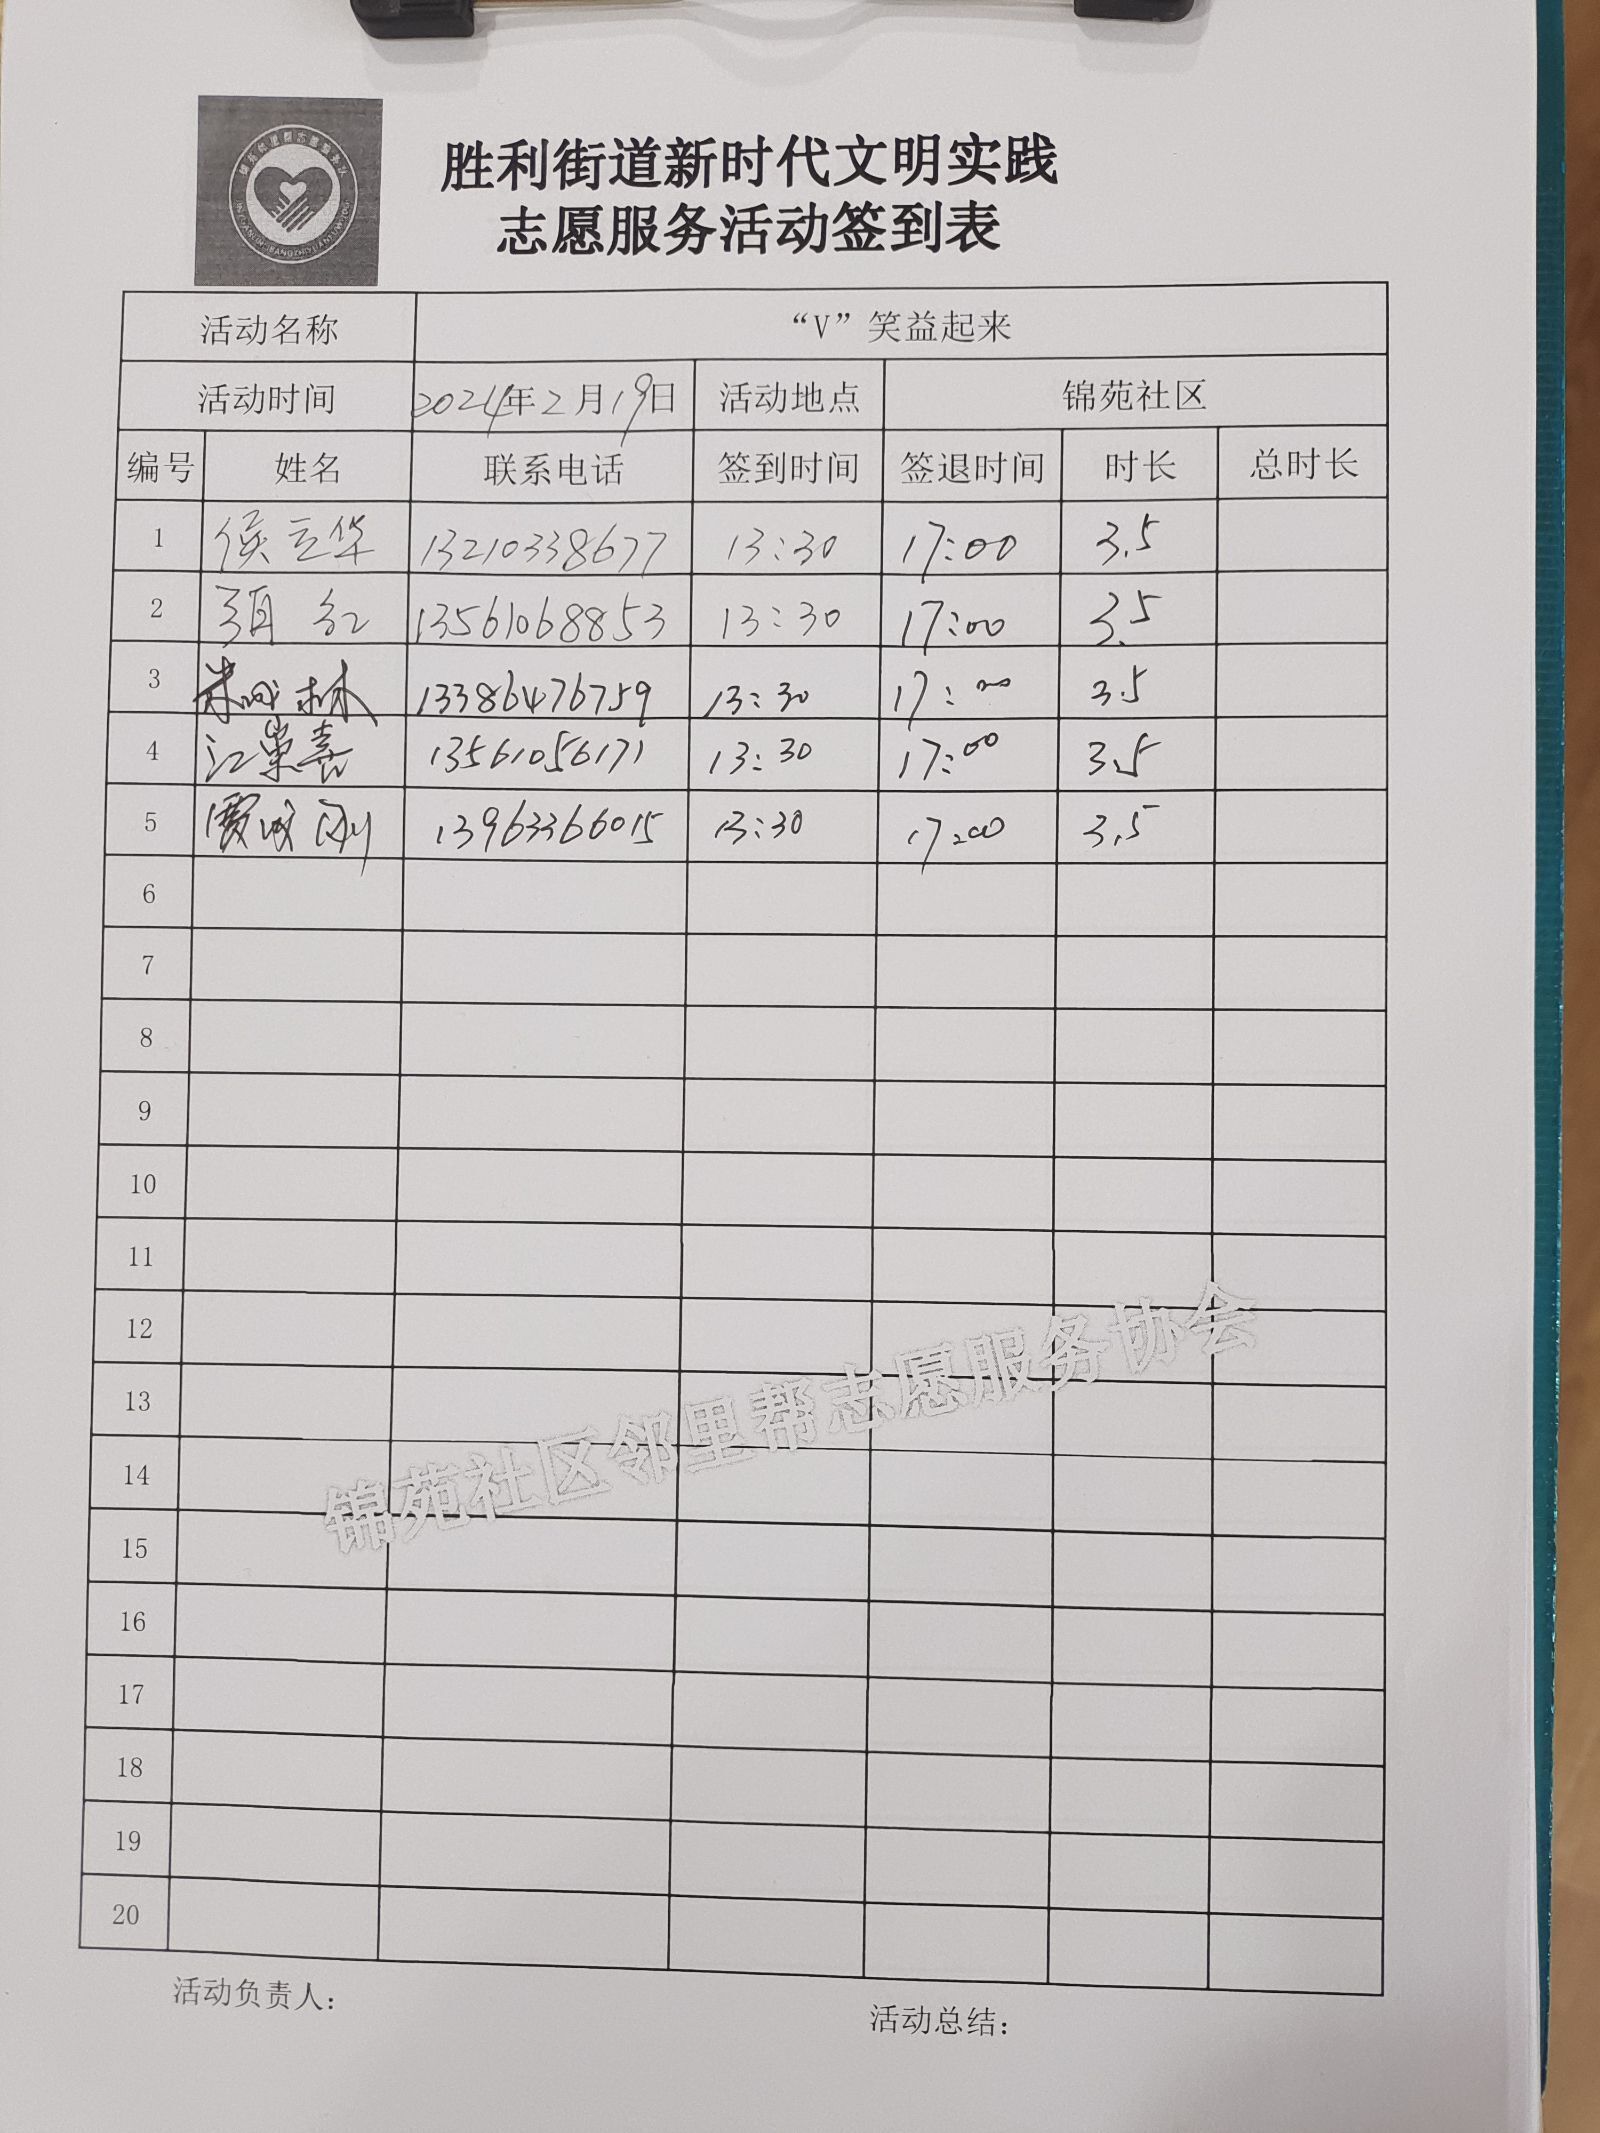 胜利街道新时代文明实践
志愿服务活动签到表
活动名称 “V”笑益起来
活动时间 2024年2月19日 活动地点 锦苑社区
编号 姓名 联系电话 签到时间 签退时间 时长 总时长
1 侯立华 13210338677 13:30 17:00 3.5
2 项红 13561068853 13:30 17:00 3.5
3 林 13386476759 13:30 17:00 3.5
4 江崇喜 13561056171 13:30 17:00 3.5
5 贾成刚 13963366015 13:30 17:00 3.5
6
7
8
9
10
11
12
13
14
15
16
17
18
19
20
锦苑社区邻里帮志愿服务协会
活动负责人：
活动总结：